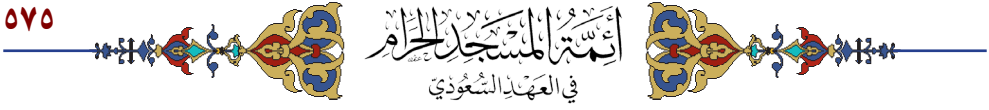 ٥٧٥
أَئِمَّةُ المَسْجِدِ الحَرَامِ
فِي العَهْدِ السُّعُودِيّ